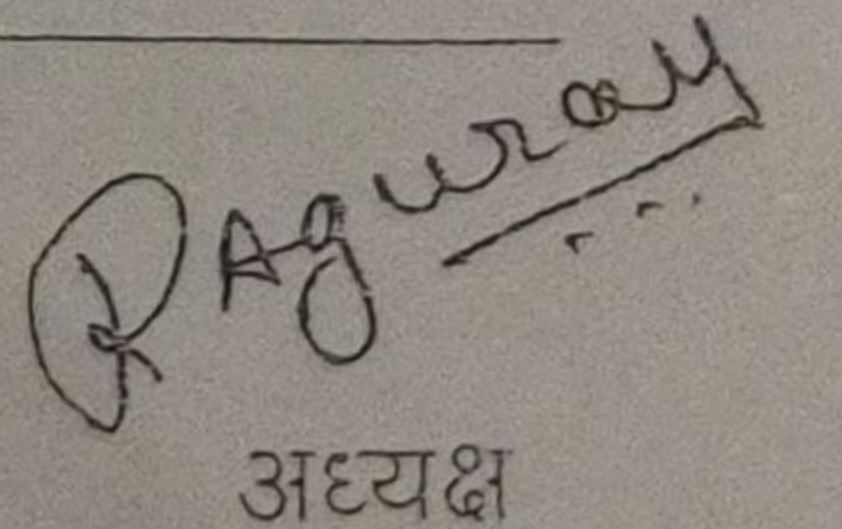 Raguray
अध्यक्ष